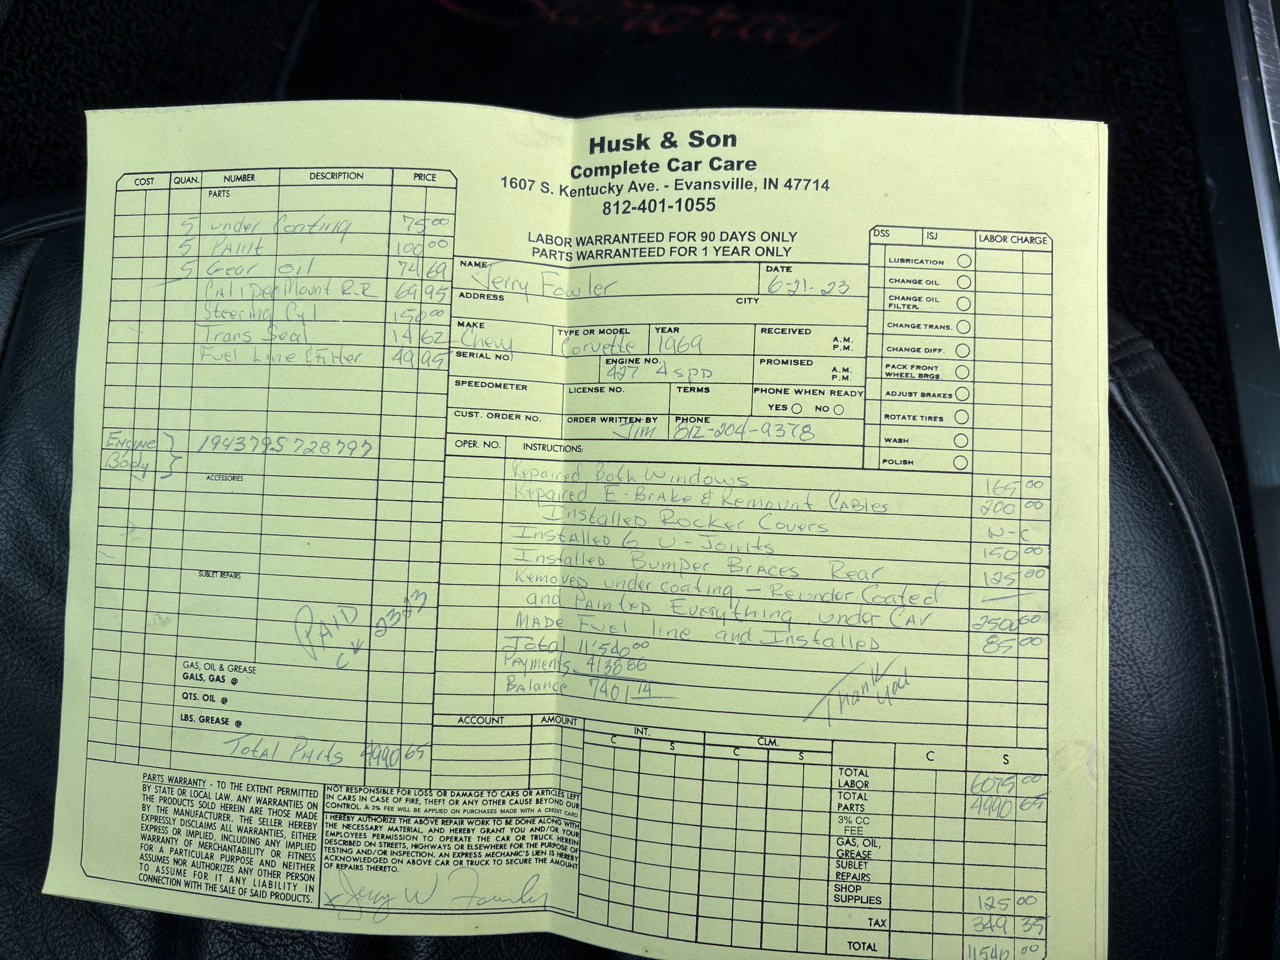 Husk & Son
Complete Car Care
1607 S. Kentucky Ave. - Evansville, IN 47714
812-401-1055
LABOR WARRANTEED FOR 90 DAYS ONLY
PARTS WARRANTEED FOR 1 YEAR ONLY
COST QUAN. NUMBER DESCRIPTION PRICE
PARTS
5 under Coating 75 00
5 Paint 100 00
5 Gear oil 74 69
Caliper Mount R.R 69 95
Steering Cyl 150 00
Trans Seal 14 62
Fuel Line & Filter 49 95
Engine
Body
194379S728797
ACCESSORIES
SUBLET REPAIRS
PAID
GAS, OIL & GREASE
GALS, GAS @
QTS. OIL @
LBS. GREASE @
Total Parts 4990 65
NAME Jerry Fowler DATE 6-21-23
ADDRESS CITY
MAKE Chevy TYPE OR MODEL Corvette YEAR 1969 RECEIVED A.M. P.M.
SERIAL NO. ENGINE NO. 427 4 SPD PROMISED A.M. P.M.
SPEEDOMETER LICENSE NO. TERMS PHONE WHEN READY
YES NO
CUST. ORDER NO. ORDER WRITTEN BY Jim PHONE 812-204-9378
DSS ISJ LABOR CHARGE
LUBRICATION
CHANGE OIL
CHANGE OIL FILTER.
CHANGE TRANS.
CHANGE DIFF.
PACK FRONT WHEEL BRGS.
ADJUST BRAKES
ROTATE TIRES
WASH
POLISH
OPER. NO. INSTRUCTIONS:
Repaired Both Windows 165 00
Repaired E-Brake & Remount Cables 200 00
Installed Rocker Covers N-C
Installed 6 U-Joints 150 00
Installed Bumper Braces Rear 125 00
Removed undercoating - Reunder Coated
and Painted Everything under Car
Made Fuel line and Installed 85 00
Total 11'540 00
Payments 4138 86
Balance 7401 14
Thank you
ACCOUNT AMOUNT
INT. CLM.
C S C S C S
TOTAL LABOR 6075 00
TOTAL PARTS 4990 65
3% CC FEE
GAS, OIL, GREASE
SUBLET REPAIRS
SHOP SUPPLIES 125 00
TAX 349 35
TOTAL 11540 00
PARTS WARRANTY - TO THE EXTENT PERMITTED
BY STATE OR LOCAL LAW. ANY WARRANTIES ON
THE PRODUCTS SOLD HEREIN ARE THOSE MADE
BY THE MANUFACTURER. THE SELLER HEREBY
EXPRESSLY DISCLAIMS ALL WARRANTIES, EITHER
EXPRESS OR IMPLIED, INCLUDING ANY IMPLIED
WARRANTY OF MERCHANTABILITY OR FITNESS
FOR A PARTICULAR PURPOSE AND NEITHER
ASSUMES NOR AUTHORIZES ANY OTHER PERSON
TO ASSUME FOR IT ANY LIABILITY IN
CONNECTION WITH THE SALE OF SAID PRODUCTS.
NOT RESPONSIBLE FOR LOSS OR DAMAGE TO CARS OR ARTICLES LEFT
IN CARS IN CASE OF FIRE, THEFT OR ANY OTHER CAUSE BEYOND OUR
CONTROL. A 3% FEE WILL BE APPLIED ON PURCHASES MADE WITH A CREDIT CARD
I HEREBY AUTHORIZE THE ABOVE REPAIR WORK TO BE DONE ALONG WITH
THE NECESSARY MATERIAL, AND HEREBY GRANT YOU AND/OR YOUR
EMPLOYEES PERMISSION TO OPERATE THE CAR OR TRUCK HEREIN
DESCRIBED ON STREETS, HIGHWAYS OR ELSEWHERE FOR THE PURPOSE OF
TESTING AND/OR INSPECTION. AN EXPRESS MECHANIC'S LIEN IS HEREBY
ACKNOWLEDGED ON ABOVE CAR OR TRUCK TO SECURE THE AMOUNT
OF REPAIRS THERETO.
x Jerry W Fowler